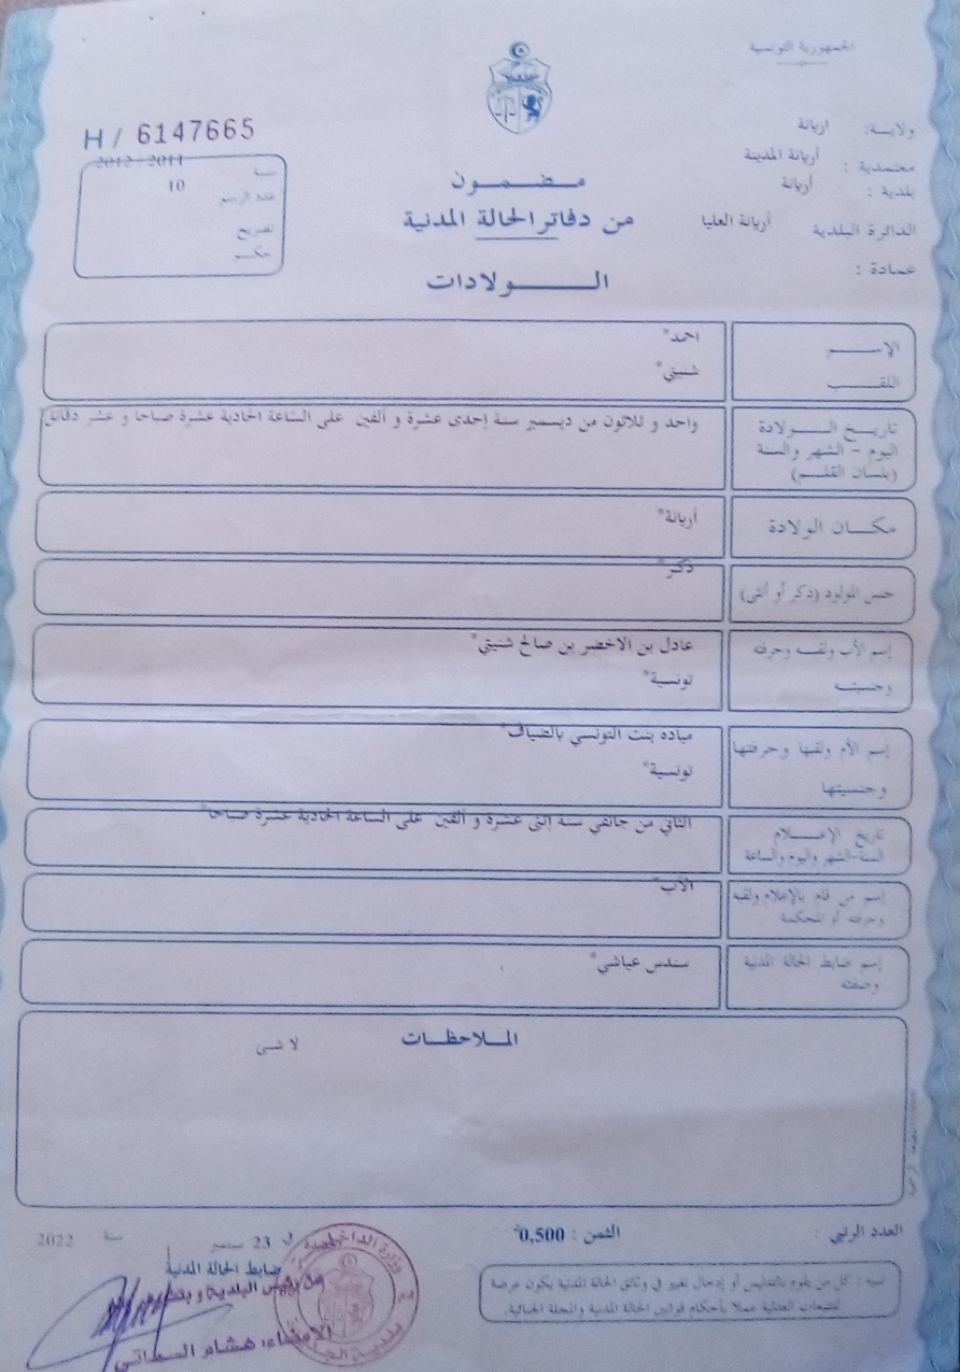 الجمهورية التونسية
ولاية: اريانة
معتمدية : أريانة المدينة
بلدية : أريانة
الدائرة البلدية أريانة العليا
عمادة :
H / 6147665
سنة 2012 / 2011
عدد الرسم 10
تصريح
حكم
مضمون
من دفاتر الحالة المدنية
الولادات
الإسم احمد*
اللقب شنيتي*
تاريخ الولادة
اليوم - الشهر والسنة
(بلسان القلم)
واحد و ثلاثون من ديسمبر سنة إحدى عشرة و ألفين على الساعة الحادية عشرة صباحا و عشر دقائق
مكان الولادة أريانة*
جنس المولود (ذكر أو أنثى) ذكر*
إسم الأب ولقبه وحرفته
وجنسيته
عادل بن الاخضر بن صالح شنيتي*
تونسية*
إسم الأم ولقبها وحرفتها
وجنسيتها
مياده بنت التونسي بالضياف*
تونسية*
تاريخ الإعلام
السنة-الشهر واليوم والساعة
الثاني من جانفي سنة إثنى عشرة و ألفين على الساعة الحادية عشرة صباحا*
إسم من قام بالإعلام ولقبه
وحرفته أو المحكمة
الأب*
إسم ضابط الحالة المدنية
وصفته
سندس عياشي*
الملاحظات
لا شى
العدد الرتبي :
الثمن : 0,500
في 23 سبتمبر سنة 2022
ضابط الحالة المدنية
عن رئيس البلدية و
الامضاء: هشام
تنبيه : كل من يقوم بالتدليس أو إدخال تغيير في وثائق الحالة المدنية يكون عرضة
لتتبعات العدلية عملا بأحكام قوانين الحالة المدنية والمجلة الجنائية.